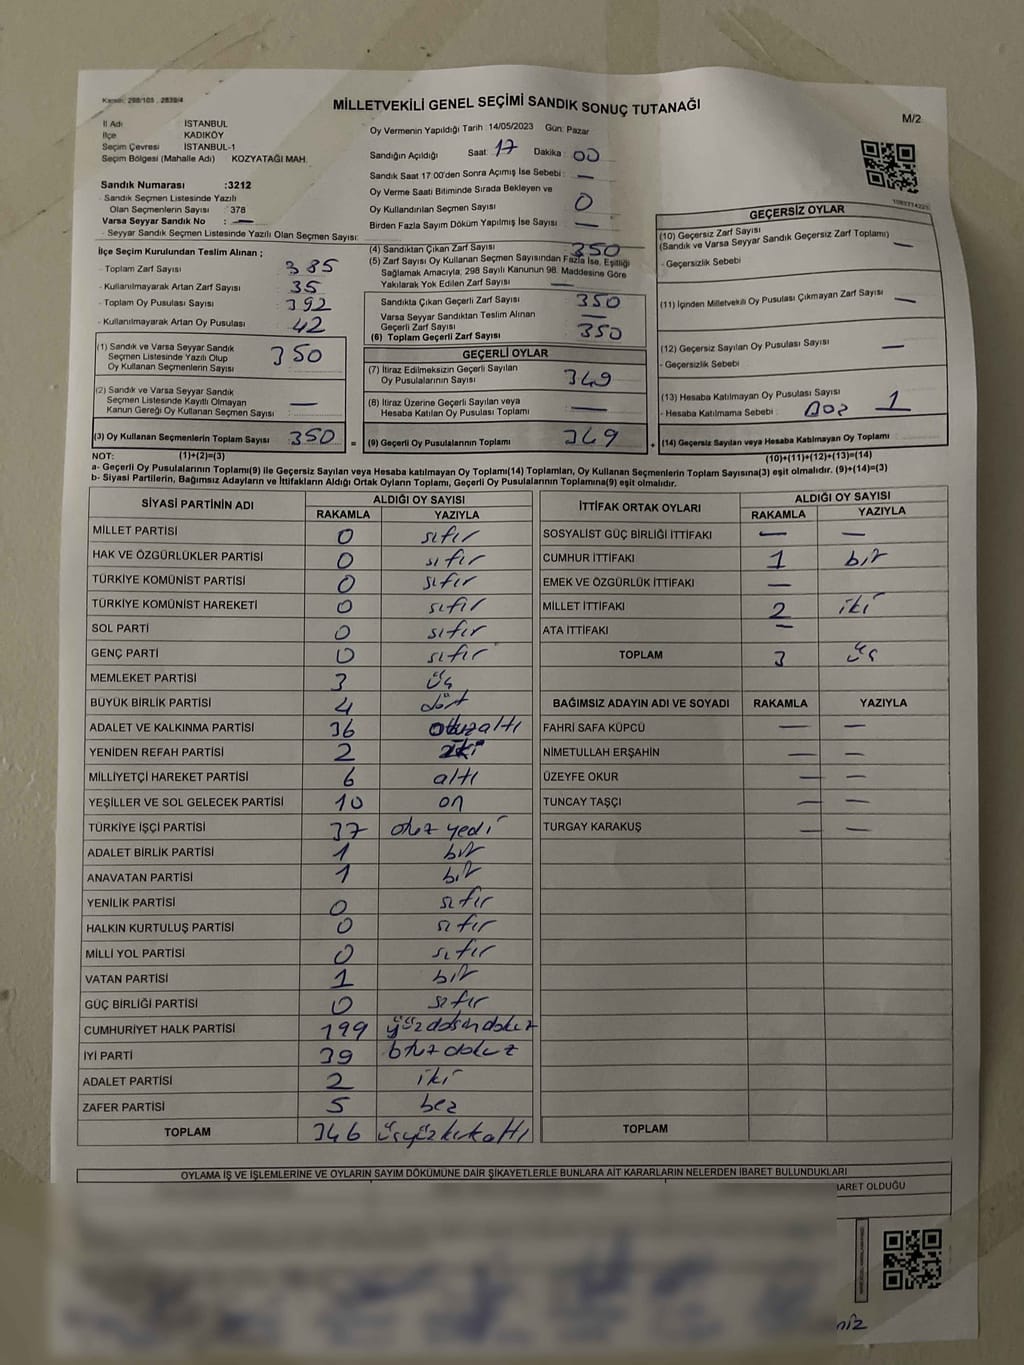 Kanun: 298/105 , 2839/4
MİLLETVEKİLİ GENEL SEÇİMİ SANDIK SONUÇ TUTANAĞI
M/2
İl Adı İSTANBUL
İlçe KADIKÖY
Seçim Çevresi İSTANBUL-1
Seçim Bölgesi (Mahalle Adı) KOZYATAĞI MAH.
Sandık Numarası :3212
- Sandık Seçmen Listesinde Yazılı
Olan Seçmenlerin Sayısı : 378
Varsa Seyyar Sandık No : —
- Seyyar Sandık Seçmen Listesinde Yazılı Olan Seçmen Sayısı:
Oy Vermenin Yapıldığı Tarih :14/05/2023 Gün: Pazar
Sandığın Açıldığı Saat: 17 Dakika: 00
Sandık Saat 17:00'den Sonra Açımış İse Sebebi : —
Oy Verme Saati Bitiminde Sırada Bekleyen ve
Oy Kullandırılan Seçmen Sayısı : 0
Birden Fazla Sayım Döküm Yapılmış İse Sayısı : —
İlçe Seçim Kurulundan Teslim Alınan ;
- Toplam Zarf Sayısı : 385
- Kullanılmayarak Artan Zarf Sayısı : 35
- Toplam Oy Pusulası Sayısı : 392
- Kullanılmayarak Artan Oy Pusulası : 42
(1) Sandık ve Varsa Seyyar Sandık
Seçmen Listesinde Yazılı Olup
Oy Kullanan Seçmenlerin Sayısı : 350
(2) Sandık ve Varsa Seyyar Sandık
Seçmen Listesinde Kayıtlı Olmayan
Kanun Gereği Oy Kullanan Seçmen Sayısı : —
(3) Oy Kullanan Seçmenlerin Toplam Sayısı : 350 =
(4) Sandıktan Çıkan Zarf Sayısı : 350
(5) Zarf Sayısı Oy Kullanan Seçmen Sayısından Fazla İse, Eşitliği
Sağlamak Amacıyla, 298 Sayılı Kanunun 98. Maddesine Göre
Yakılarak Yok Edilen Zarf Sayısı : —
Sandıkta Çıkan Geçerli Zarf Sayısı : 350
Varsa Seyyar Sandıktan Teslim Alınan
Geçerli Zarf Sayısı : —
(6) Toplam Geçerli Zarf Sayısı : 350
GEÇERLİ OYLAR
(7) İtiraz Edilmeksizin Geçerli Sayılan
Oy Pusulalarının Sayısı : 349
(8) İtiraz Üzerine Geçerli Sayılan veya
Hesaba Katılan Oy Pusulası Toplamı : —
(9) Geçerli Oy Pusulalarının Toplamı : 349 +
GEÇERSİZ OYLAR
(10) Geçersiz Zarf Sayısı
(Sandık ve Varsa Seyyar Sandık Geçersiz Zarf Toplamı) —
- Geçersizlik Sebebi :
(11) İçinden Milletvekili Oy Pusulası Çıkmayan Zarf Sayısı —
(12) Geçersiz Sayılan Oy Pusulası Sayısı —
- Geçersizlik Sebebi :
(13) Hesaba Katılmayan Oy Pusulası Sayısı
- Hesaba Katılmama Sebebi : 1
(14) Geçersiz Sayılan veya Hesaba Katılmayan Oy Toplamı :
NOT: (1)+(2)=(3) (10)+(11)+(12)+(13)=(14)
a- Geçerli Oy Pusulalarının Toplamı(9) ile Geçersiz Sayılan veya Hesaba katılmayan Oy Toplamı(14) Toplamları, Oy Kullanan Seçmenlerin Toplam Sayısına(3) eşit olmalıdır. (9)+(14)=(3)
b- Siyasi Partilerin, Bağımsız Adayların ve İttifakların Aldığı Ortak Oyların Toplamı, Geçerli Oy Pusulalarının Toplamına(9) eşit olmalıdır.
SİYASİ PARTİNİN ADI ALDIĞI OY SAYISI
RAKAMLA YAZIYLA
MİLLET PARTİSİ 0 sıfır
HAK VE ÖZGÜRLÜKLER PARTİSİ 0 sıfır
TÜRKİYE KOMÜNİST PARTİSİ 0 sıfır
TÜRKİYE KOMÜNİST HAREKETİ 0 sıfır
SOL PARTİ 0 sıfır
GENÇ PARTİ 0 sıfır
MEMLEKET PARTİSİ 3 üç
BÜYÜK BİRLİK PARTİSİ 4 dört
ADALET VE KALKINMA PARTİSİ 36 otuzaltı
YENİDEN REFAH PARTİSİ 2 iki
MİLLİYETÇİ HAREKET PARTİSİ 6 altı
YEŞİLLER VE SOL GELECEK PARTİSİ 10 on
TÜRKİYE İŞÇİ PARTİSİ 37 otuz yedi
ADALET BİRLİK PARTİSİ 1 bir
ANAVATAN PARTİSİ 1 bir
YENİLİK PARTİSİ 0 sıfır
HALKIN KURTULUŞ PARTİSİ 0 sıfır
MİLLİ YOL PARTİSİ 0 sıfır
VATAN PARTİSİ 1 bir
GÜÇ BİRLİĞİ PARTİSİ 0 sıfır
CUMHURİYET HALK PARTİSİ 199 yüzdoksandokuz
İYİ PARTİ 39 otuzdokuz
ADALET PARTİSİ 2 iki
ZAFER PARTİSİ 5 beş
TOPLAM 346 üçyüzkırkaltı
İTTİFAK ORTAK OYLARI ALDIĞI OY SAYISI
RAKAMLA YAZIYLA
SOSYALİST GÜÇ BİRLİĞİ İTTİFAKI — —
CUMHUR İTTİFAKI 1 bir
EMEK VE ÖZGÜRLÜK İTTİFAKI —
MİLLET İTTİFAKI 2 iki
ATA İTTİFAKI —
TOPLAM 3 üç
BAĞIMSIZ ADAYIN ADI VE SOYADI RAKAMLA YAZIYLA
FAHRİ SAFA KÜPCÜ — —
NİMETULLAH ERŞAHİN — —
ÜZEYFE OKUR — —
TUNCAY TAŞÇI — —
TURGAY KARAKUŞ — —
TOPLAM
OYLAMA İŞ VE İŞLEMLERİNE VE OYLARIN SAYIM DÖKÜMÜNE DAİR ŞİKAYETLERLE BUNLARA AİT KARARLARIN NELERDEN İBARET BULUNDUKLARI
BARET OLDUĞU